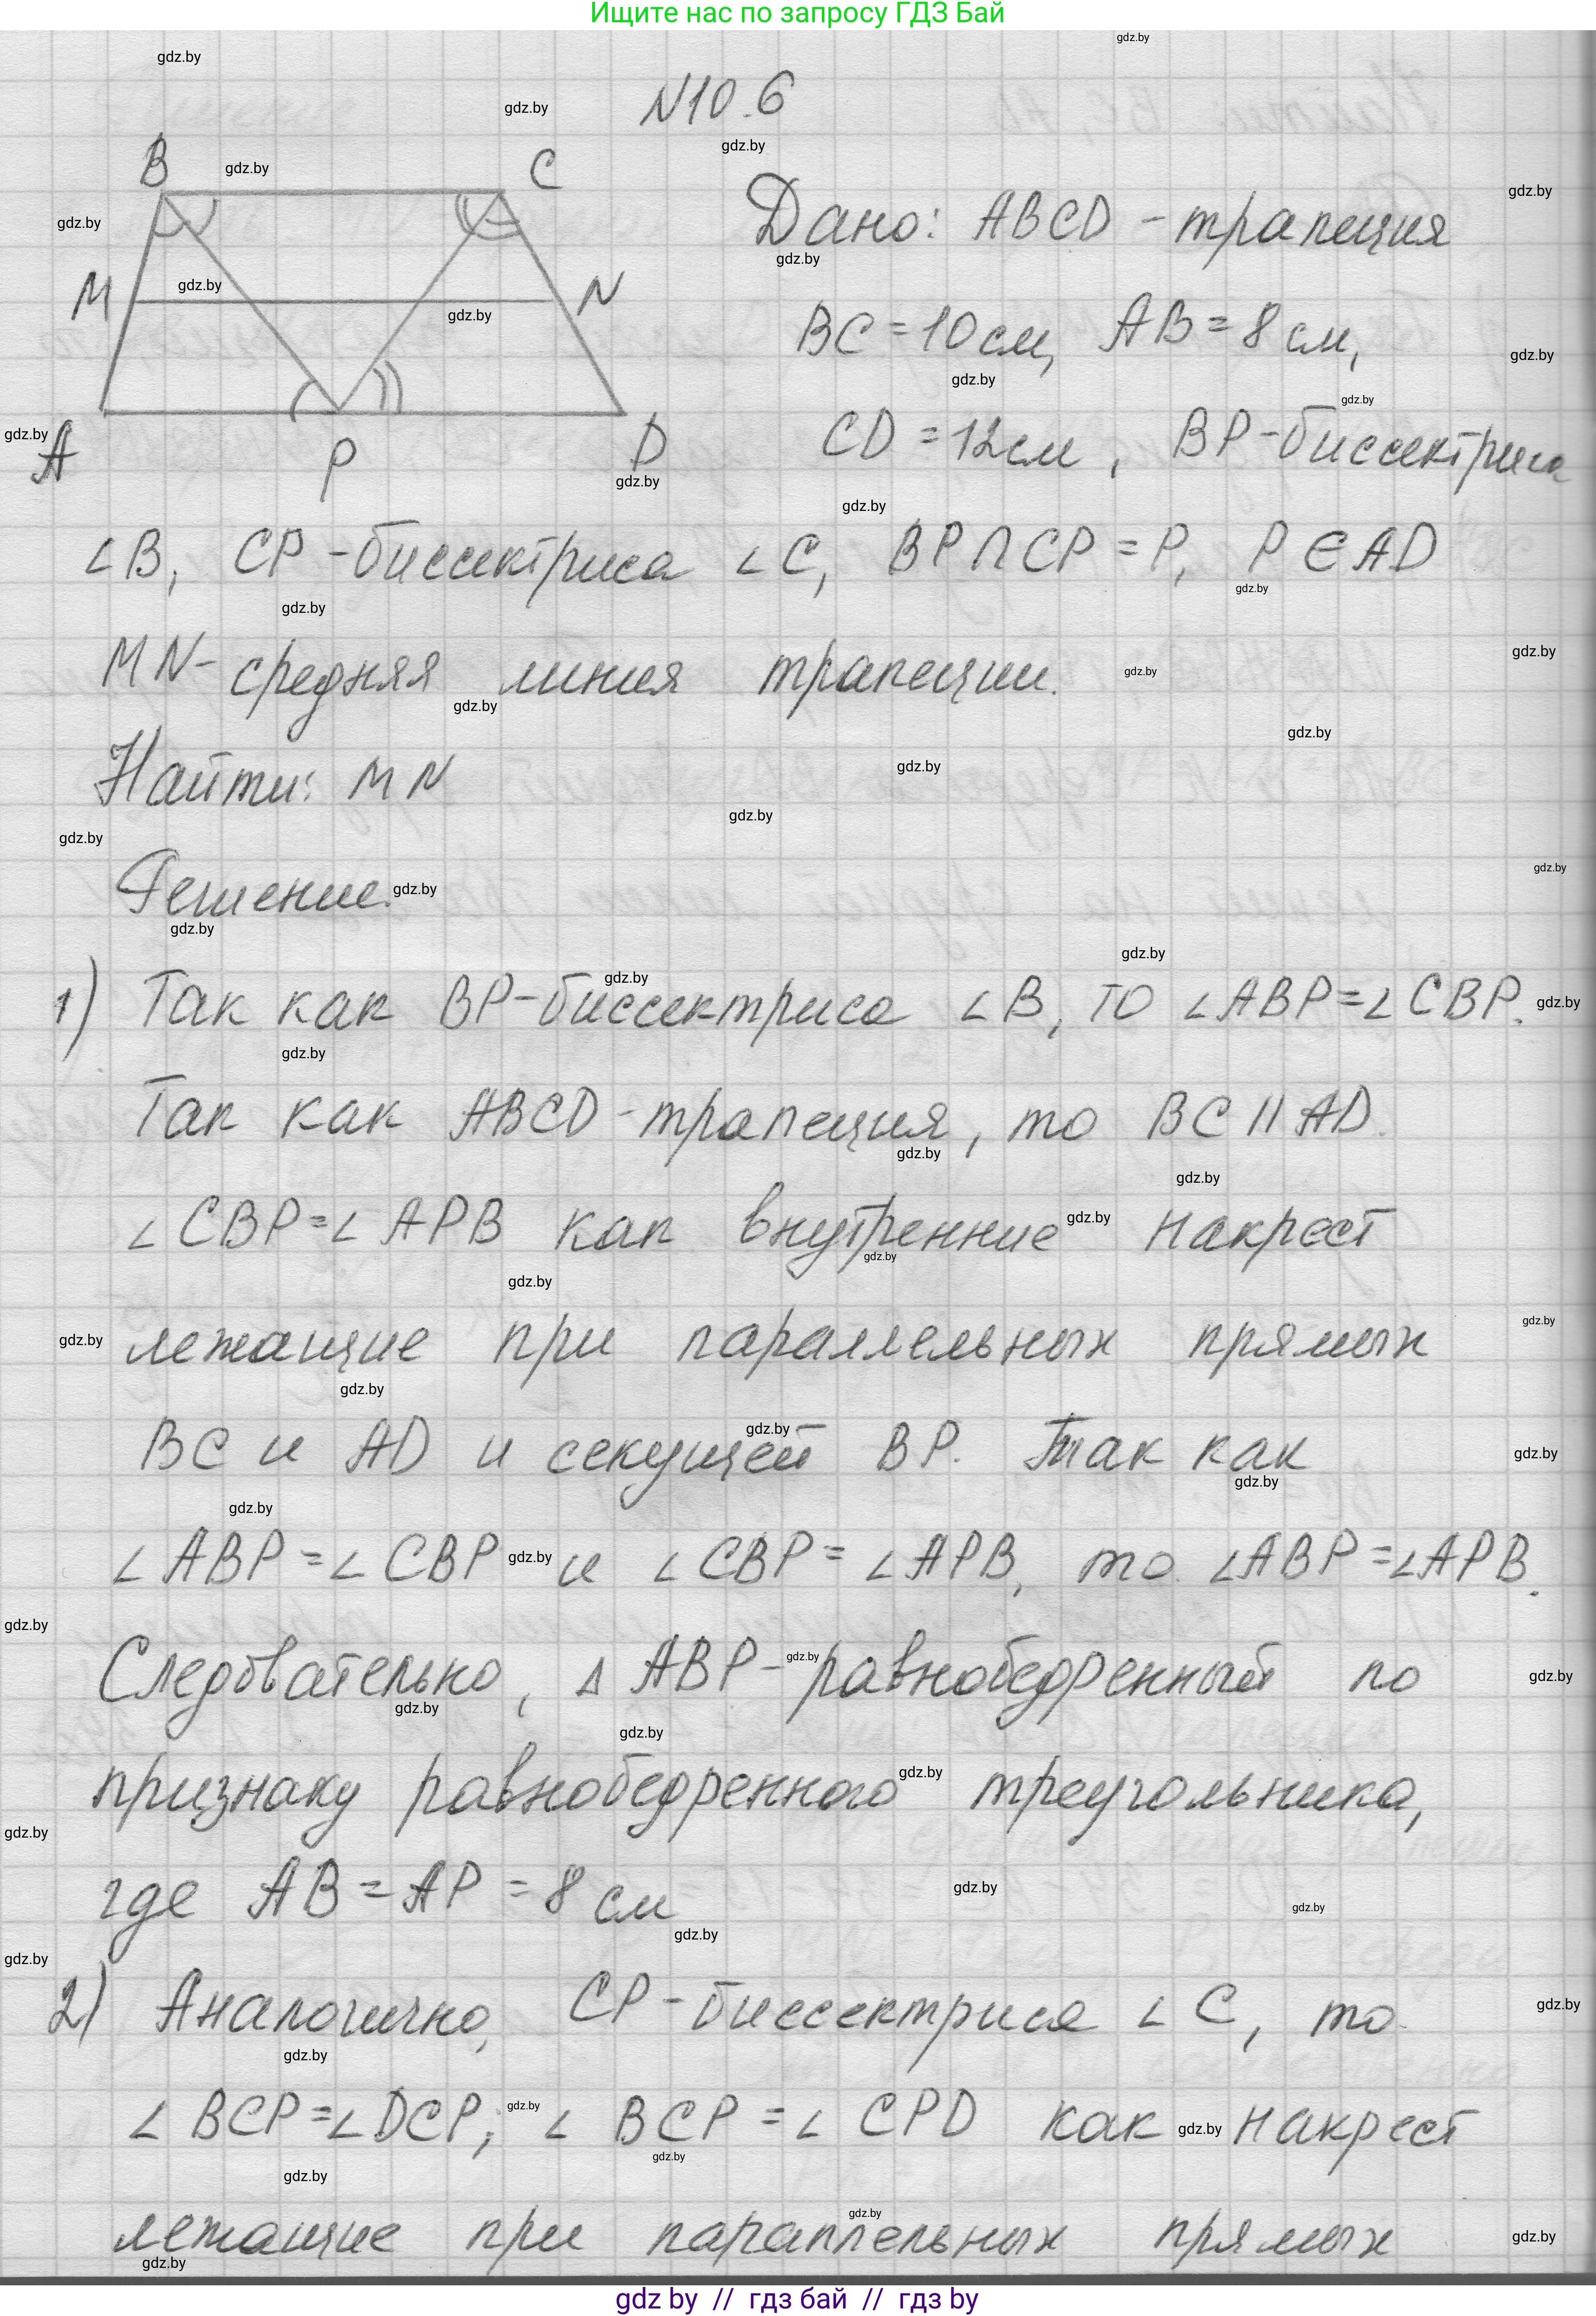 Ищите нас по запросу ГДЗ Бай
N10.6
B C
M N
A P D
Дано: ABCD - трапеция
BC = 10 см, AB = 8 см,
CD = 12 см, BP - биссектриса
∠B, CP - биссектриса ∠C, BP ∩ CP = P, P ∈ AD
MN - средняя линия трапеции.
Найти: MN
Решение.
1) Так как BP - биссектриса ∠B, то ∠ABP = ∠CBP.
Так как ABCD - трапеция, то BC || AD.
∠CBP = ∠APB как внутренние накрест
лежащие при параллельных прямых
BC и AD и секущей BP. Так как
∠ABP = ∠CBP и ∠CBP = ∠APB, то ∠ABP = ∠APB.
Следовательно, △ABP - равнобедренный по
признаку равнобедренного треугольника,
где AB = AP = 8 см
2) Аналогично, CP - биссектриса ∠C, то
∠BCP = ∠DCP; ∠BCP = ∠CPD как накрест
лежащие при параллельных прямых
gdz by // гдз бай // gdz by